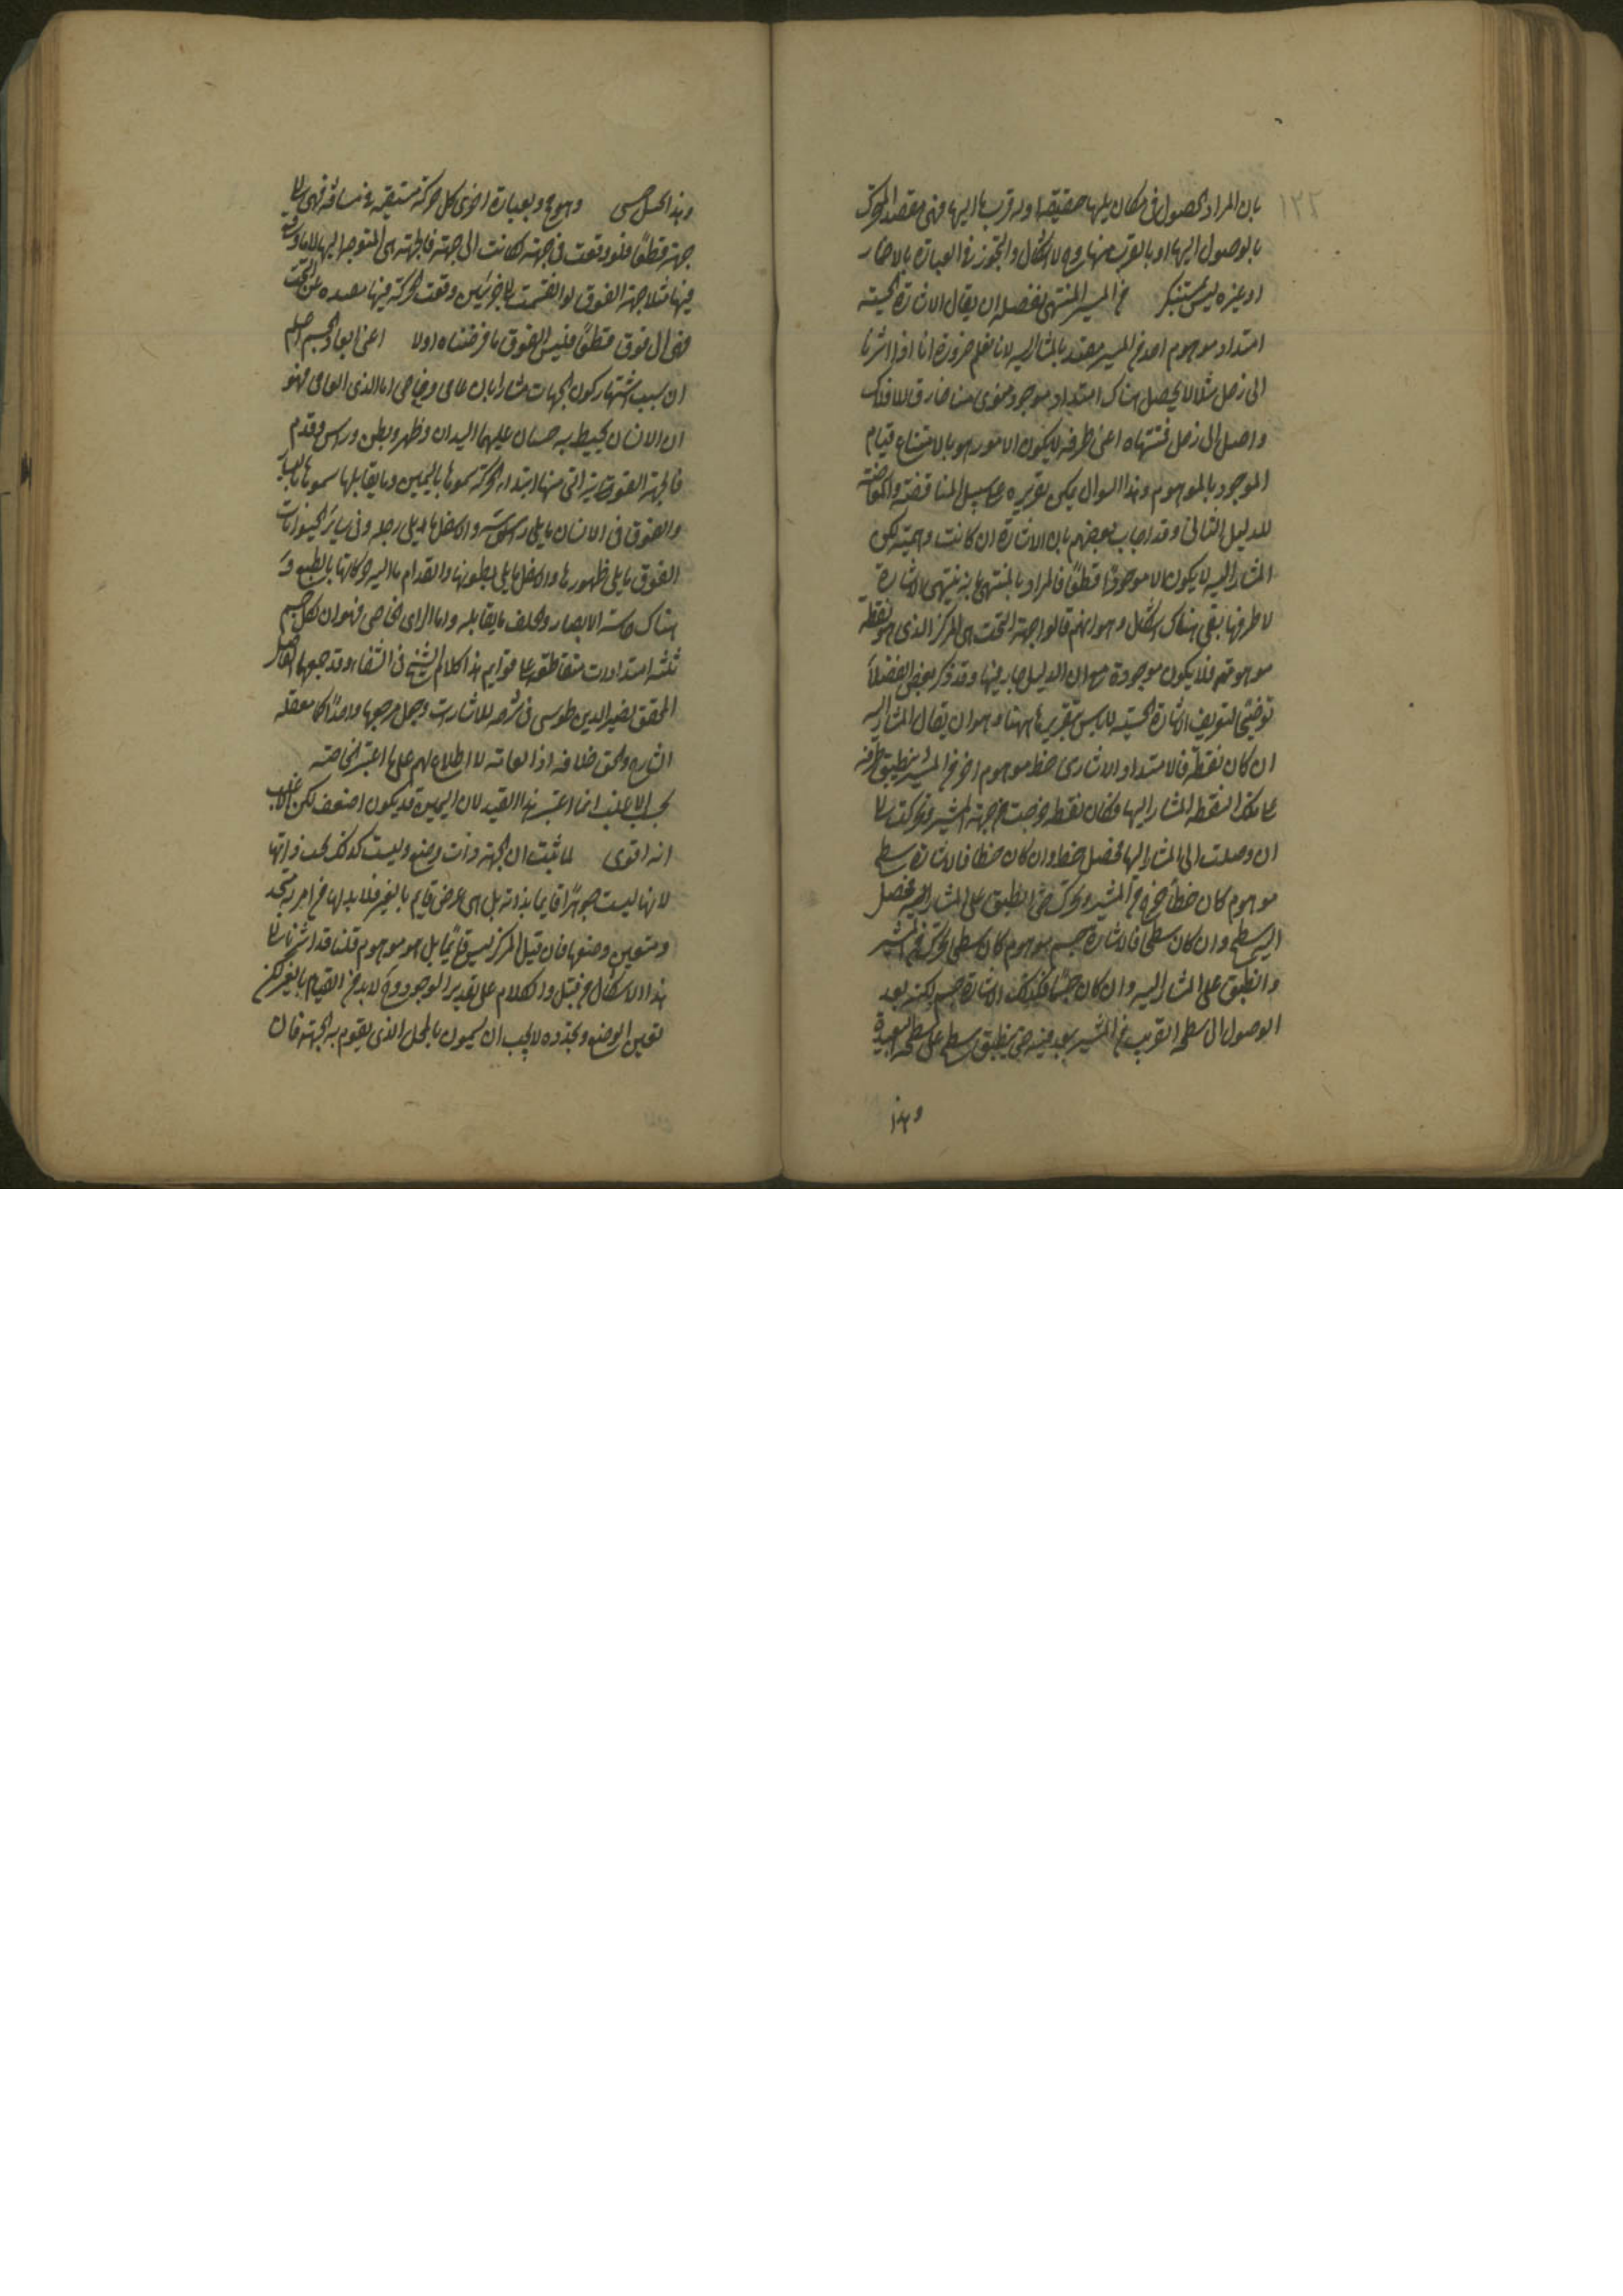 ١٢٢
بان المراد الحصول فى مكان يليها حقيقة اوله قرب ما اليها فهى مقصد المتحرك
بالوصول اليها او بالقرب منها وح لا اشكال والتجوز فى العبارة بالاضمار
او غيره ليس بمستنكر من المشير المنتهى تفصيله ان يقال الاشارة الحسية
امتداد موهوم اخذ من المشير منتهيا بالمشار اليه لانا نعلم ضرورة انا اذا اشرنا
الى زحل مثلا لا يحصل هناك امتداد موجود مخرج منا خارق للافلاك
واصل الى زحل فمنتهاه اعنى طرفه لا يكون الا موهوما لامتناع قيام
الموجود بالموهوم وهذا السوال يمكن تقريره على سبيل المناقضة والمعارضة
للدليل الثانى وقد اجاب بعضهم بان الاشارة ان كانت وهمية لكن
المشار اليه لا يكون الا موجودا قطعا فالمراد بالمنتهى ما به ينتهى الاشارة
لا طرفها بقى هناك اشكال وهو انهم قالوا جهة التحت هى المركز الذى هو نقطة
موهومة فلا يكون موجودة مع ان الدليل جار فيها وقد ذكر بعض الفضلاء
توضيحا لتعريف الاشارة الحسية لا باس بتقريرها ههنا وهو ان يقال المشار اليه
ان كان نقطة فالامتداد الاشارى خط موهوم اخرج من المشير ينطبق طرفه
على تلك النقطة المشار اليها فكان نقطة خرجت من جهة المشير وتحركت الى
ان وصلت الى المشار اليها فحصل خط وان كان خطا فالاشارة سطح
موهوم كان خطا خرج من المشير وتحرك حتى انطبق على المشار اليه فحصل
السطح وان كان سطحا فالاشارة جسم موهوم كان سطحا تحرك من المشير
وانطبق على المشار اليه وان كان جسما فكذلك الاشارة جسم لكن بعد
الوصول الى سطحه القريب من المشير ينفذ فيه حتى ينطبق سطحه على سطحه البعيد
وهذا
وهذا كـ حسى وهو ح وبعبارة اخرى كل حركة مستقيمة فى مسافة فهى الى
جهة قطعا فلو وقعت فى جهة لكانت الى جهة فالجهة هى المتوجه اليها لا ما وقع
فيها مثلا جهة الفوق لو انقسمت الى جزئين وقعت الحركة فيها مبعدة عن التحت
فهى الى فوق قطعا فليس الفوق ما فرضناه اولا اعنى ابعاد الجسم اعلم
ان سبب اشتهار كون الجهات ستا رايان عامى وخاصى اما الذى العامى فهو
ان الانسان يحيط به جنبان عليهما اليدان وظهر وبطن وراس وقدم
فالجهة القوية التى منها ابتداء الحركة سموها باليمين وما يقابلها سموها باليسار
والفوق فى الانسان ما يلى راسه والاسفل ما يلى رجله وفى سائر الحيوانات
الفوق ما يلى ظهورها والاسفل ما يلى بطونها والقدام ما اليه حركاتها بالطبع و
هناك حاسة الابصار والخلف ما يقابله واما الراى الخاصى فهو ان لكل جسم
ثلثة امتدادات متقاطعة على قوايم هذا كلام الشيخ فى الشفاء وقد جمعها الفاضل
المحقق نصير الدين طوسى فى شرحه للاشارات وجعل مرجعها واحدا كما نقله
الشارح والحق خلافه اذ العامة لا اطلاع لهم على ما اعتبره الخاصة
بحسب الاغلب انما اعتبر هذا القيد لان اليمين قد يكون اضعف لكن الاغلب
انه اقوى لما ثبت ان الجهة ذات وضع وليست كذلك بحسب ذاتها
لانها ليست جوهرا قايما بذاته بل هى عرض قايم بالغير فلا بد لها من امر به تتحدد
وتتعين وضعها فان قيل المركز ليس قايما بل هو موهوم قلنا قد اشرنا الى
هذا الاشكال من قبل والكلام على تقدير الوجود وح لا بد من القيام بالغير لكن
تعين الوضع وتحدده لا يجب ان يكون بالمحل الذى يقوم به الجهة فان